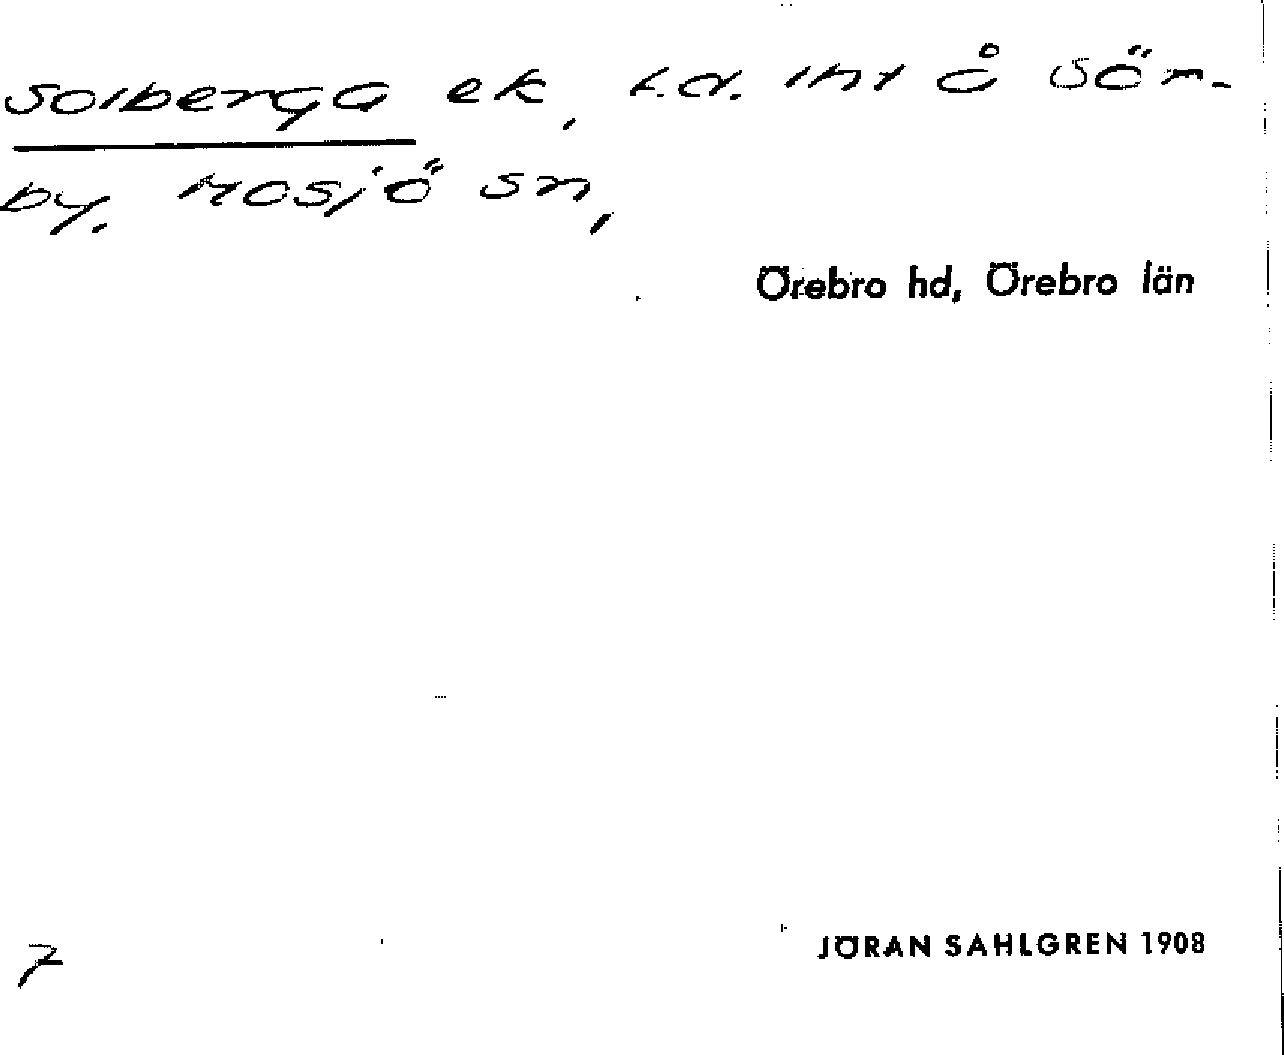 Solberga ek, l.d. int å Sör-
by. Mosjö sn,
Örebro hd, Örebro län
7
JÖRAN SAHLGREN 1908